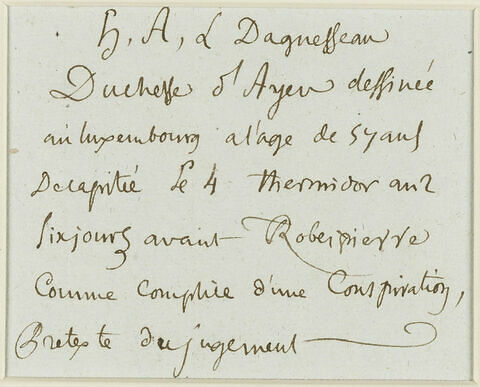 h, A, L Daguesseau
Duchesse d'Ayen dessinée
au luxembourg a l'age de 57 ans
Decapitée le 4 thermidor an 2
six jours avant Robespierre
Comme complice d'une Conspiration,
Pretexte du jugement